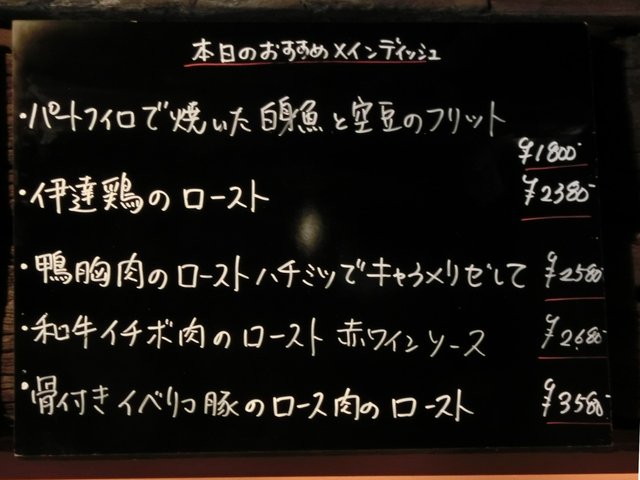 本日のおすすめメインディッシュ
・パートフィロで焼いた白身魚と空豆のフリット
¥1800-
・伊達鶏のロースト ¥2380-
・鴨胸肉のローストハチミツでキャラメリゼして ¥2580-
・和牛イチボ肉のロースト 赤ワインソース ¥2680-
・骨付きイベリコ豚のロース肉のロースト ¥3580-